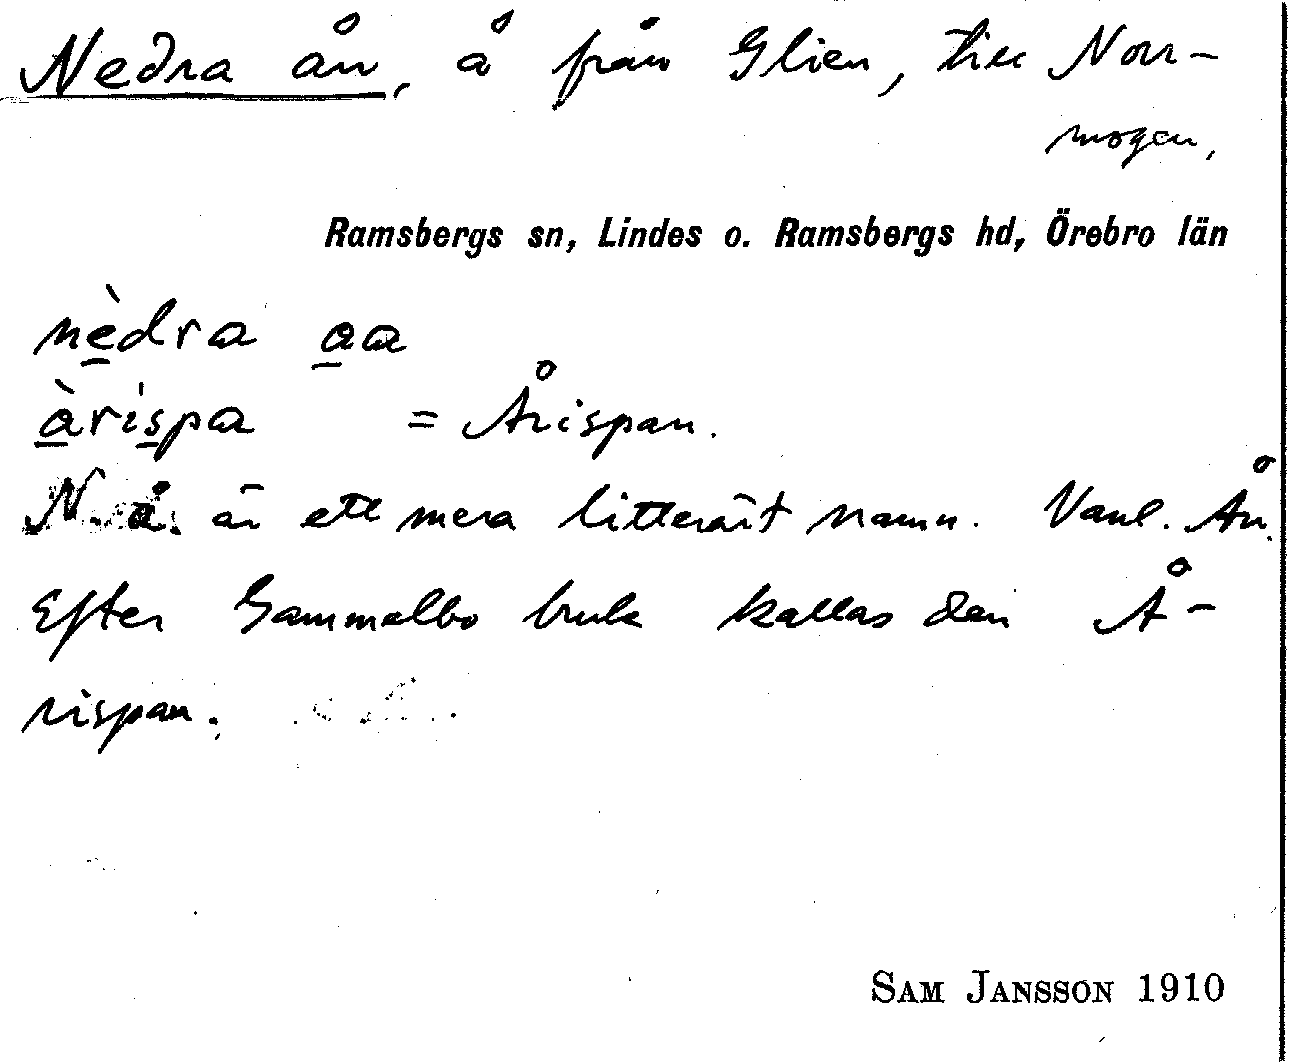 Nedra ån, å från Glien, till Norr-
mogen,
Ramsbergs sn, Lindes o. Ramsbergs hd, Örebro län
nèdra aa
àrispa = Årispan.
N. å. är ett mera litterärt namn. Vanl. Ån.
Efter Gammelbo bruk kallas den Å-
rispan.
SAM JANSSON 1910